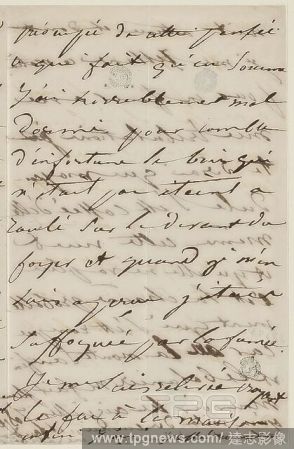 de cette pensée
ce que fait qu'en somme
J'ai horriblement mal
dormi pour comble
d'infortune le bois qui
n'était pas éteint a
roulé sur le devant du
foyer et quand je m'en
suis aperçue j'étais
suffoquée par la fumée.
Je me suis relevée
le feu à la maison
www.tpgnews.com 達志影像